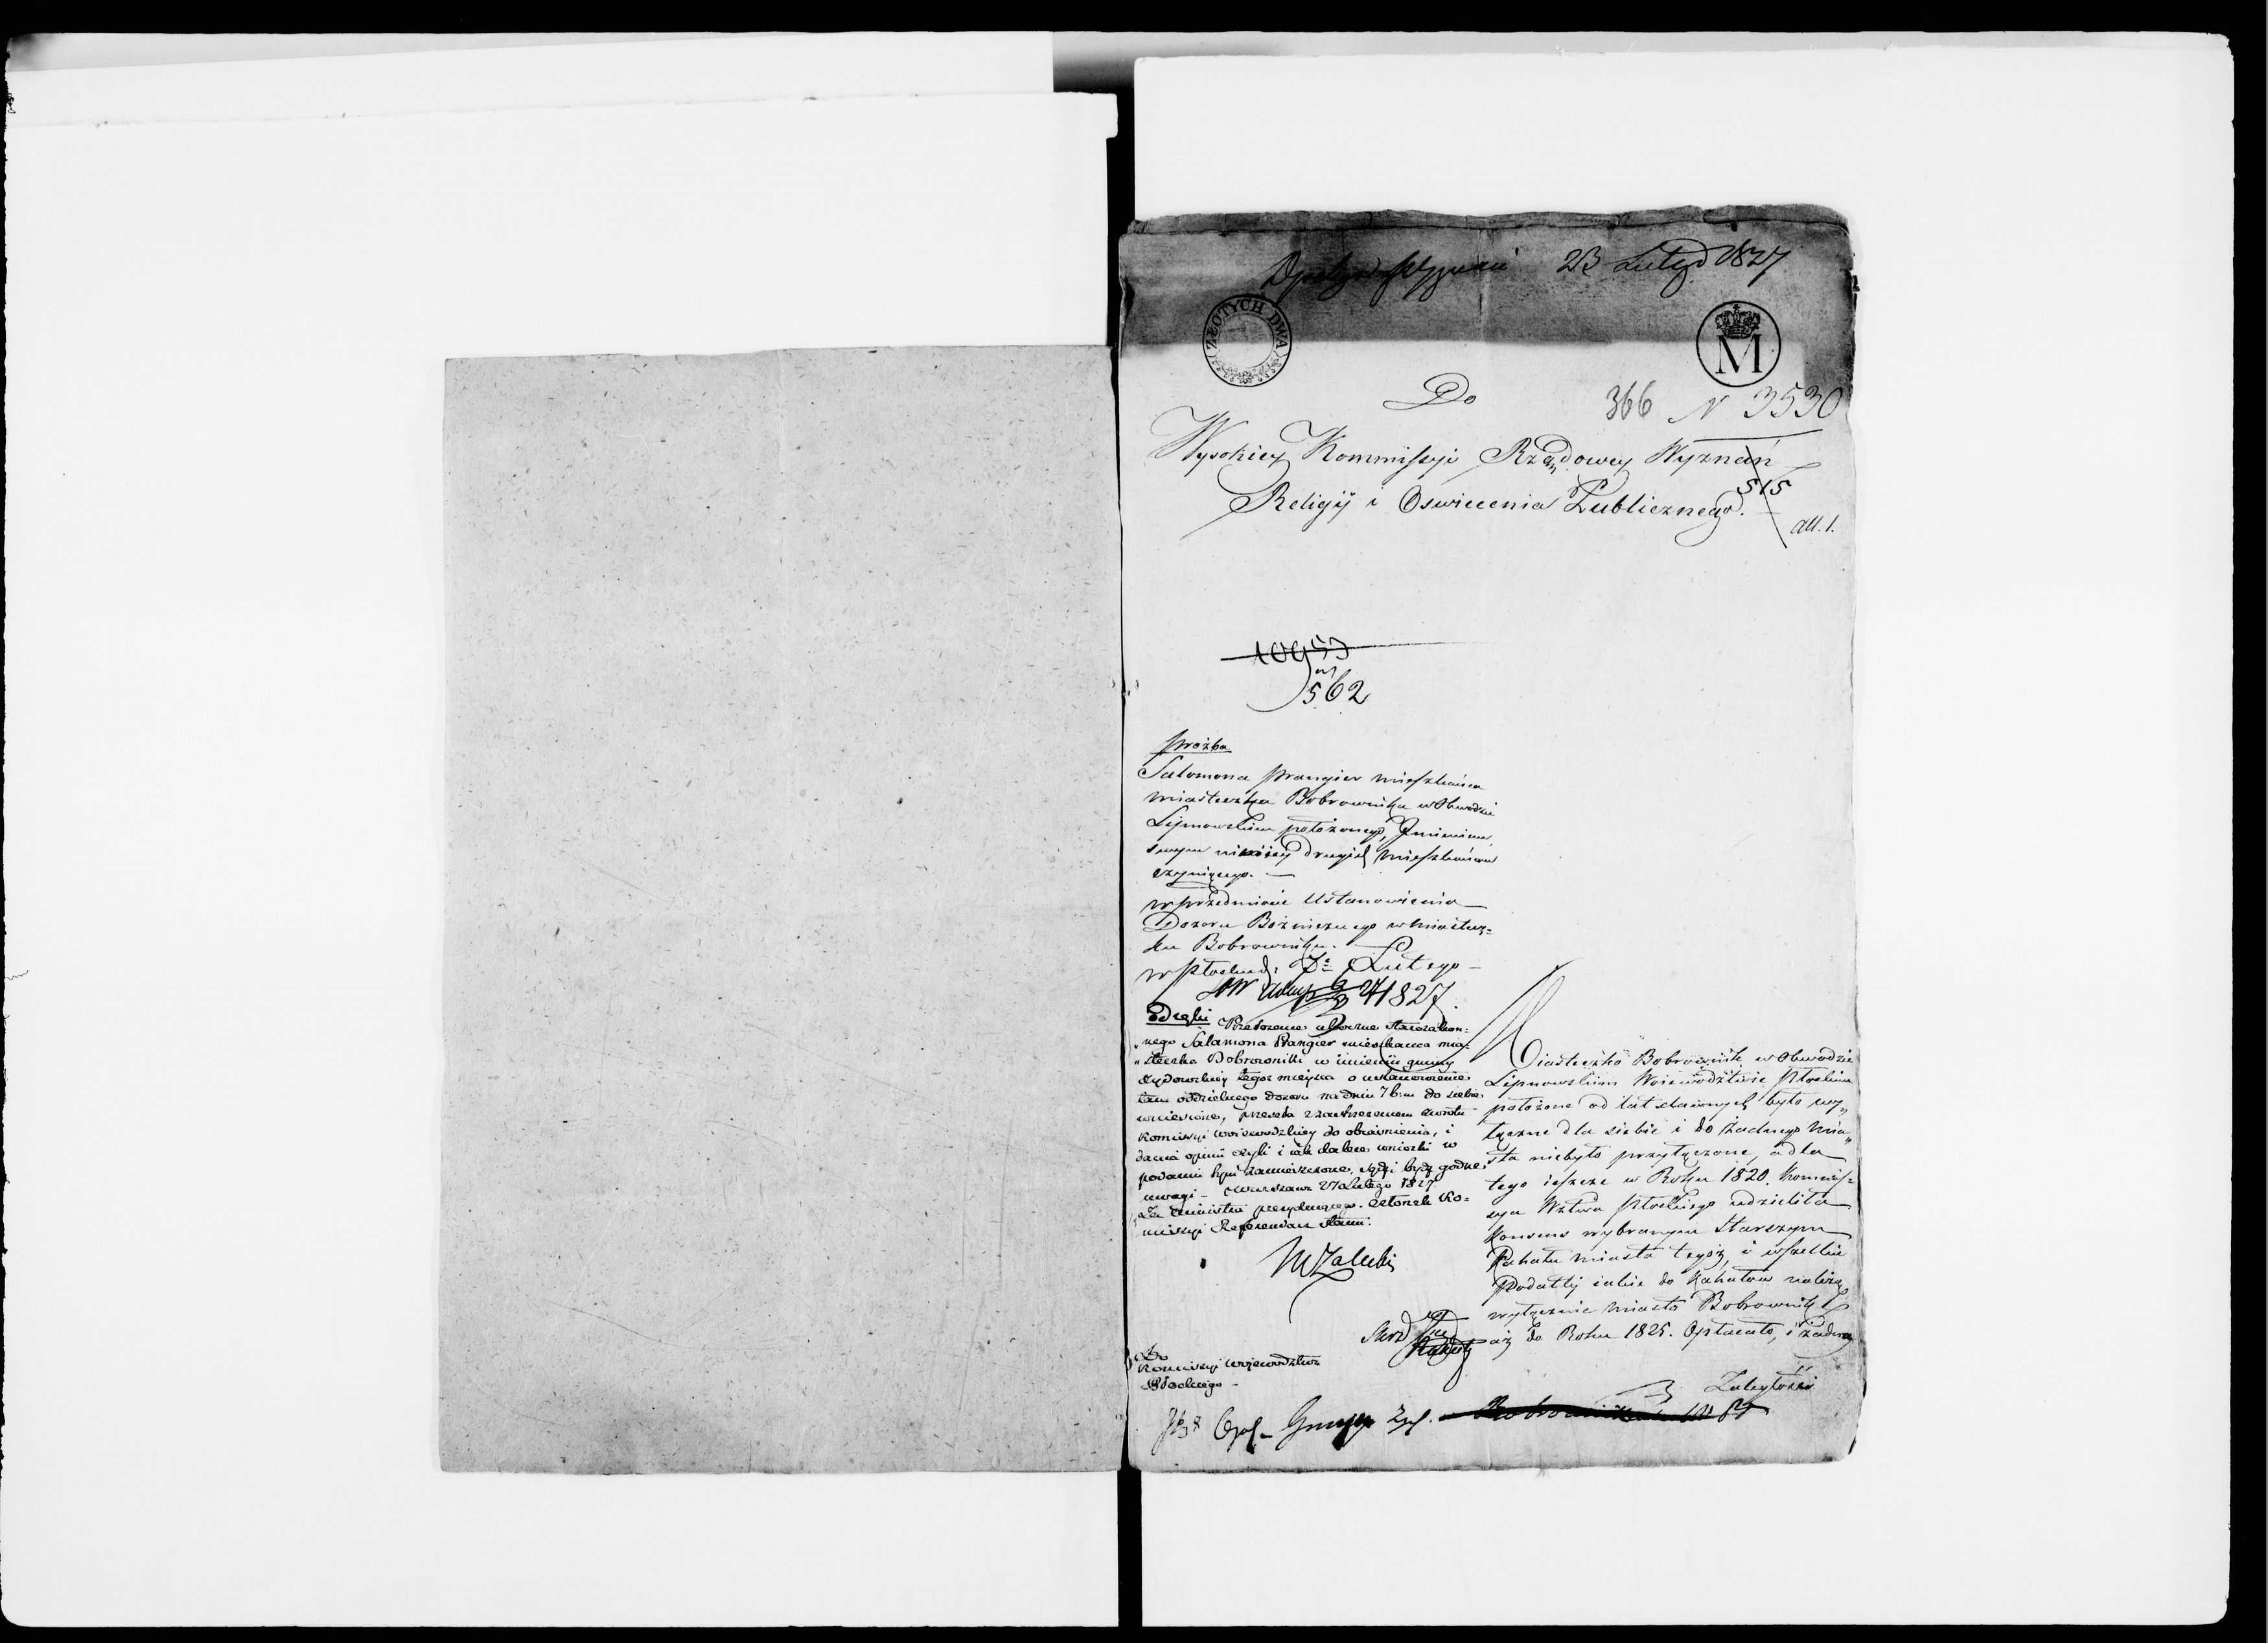 23 Lutego 1827
ZŁOTYCH DWA
M
Do
366 N 3530
Wysokiey Kommissyi Rządowey Wyznań
Religij i Oswiecenia Publicznego.
515
all. 1.
562
Prożba
Salomona Prangier mieszkańca
miasteczka Bobrownika w Obwodzie
Lipnowskim położonego, Jmieniem
swym i drugich mieszkańców
czyniącego. —
w przedmiocie Ustanowienia
Dozoru Bożniczego w miastecz=
ku Bobrowniku.
w Płocku d. Lutego
1827.
Przełożenie uboczne Starozakon=
nego Salamona Prangier mieszkańca mia=
steczka Bobrowniki w imieniu gminy
Żydowskiey tegoż mieysca o ustanowienie
tam oddzielnego dozoru na dniu 7 b. m. do siebie
wniesione, przesyła z zastrzeżeniem zwrotu
Kommissyi wojewódzkiey do obiaśnienia, i
dania opinii czyli i iak dalece wnioski w
podaniu tym zamieszczone, są godne
uwagi — Warszawa 27 Lutego 1827
Za Ministra prezyduiącego. Członek Ko=
missyi Referendarz Stanu.
MZaluski
Do
Komissyi Województwa
Płockiego —
Miasteczko Bobrownik w Obwodzie
Lipnowskim Woiewodztwie Płockim
położone od lat dawnych było wy„
łączne dla siebie i do żadnego mia„
sta niebyło przyłączone, a dla
tego ieszcze w Roku 1820. Kommis=
sya Wztwa Płockiego udzieliła
Konsens wybranym Starszym
Kahału miasta tegoż, i wszelkie
Podatki iakie do Kahałow należą
wyłącznie miasto Bobrowniki
aż do Roku 1825. Opłacało, i żadney
Zaległości